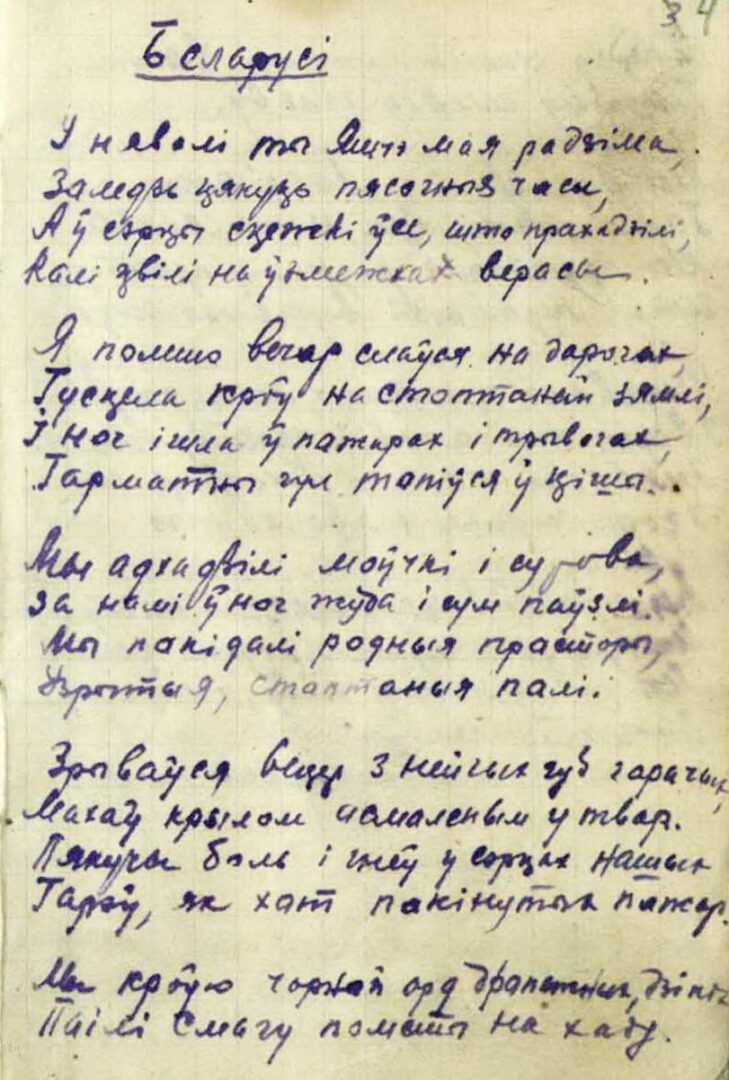 34
Беларусі
У няволі ты яшчэ мая радзіма,
Замедзь цякуць пясочныя часы,
А ў сэрцы сцежкі ўсе, што прахадзілі,
Калі цвілі на ўзмежках верасы.
Я помню вечар слаўся на дарогах,
Гусцела кроў на стоптанай зямлі,
І ноч ішла ў пажарах і трывогах,
Гарматны гул тапіўся ў цішы.
Мы адхадзілі моўчкі і сурова,
За намі ў ноч жуда і сум паўзлі.
Мы пакідалі родныя прасторы,
Узрытыя, стаптаныя палі.
Зрываўся вецер з нейчых губ гарачых,
Махаў крылом асмаленым у твар.
Пякучы боль і гнеў у сэрцах нашых
Гарэў, як хат пакінутых пажар.
Мы кроўю чорнай орд драпежных, дзікіх
Паілі смагу помсты на хаду.